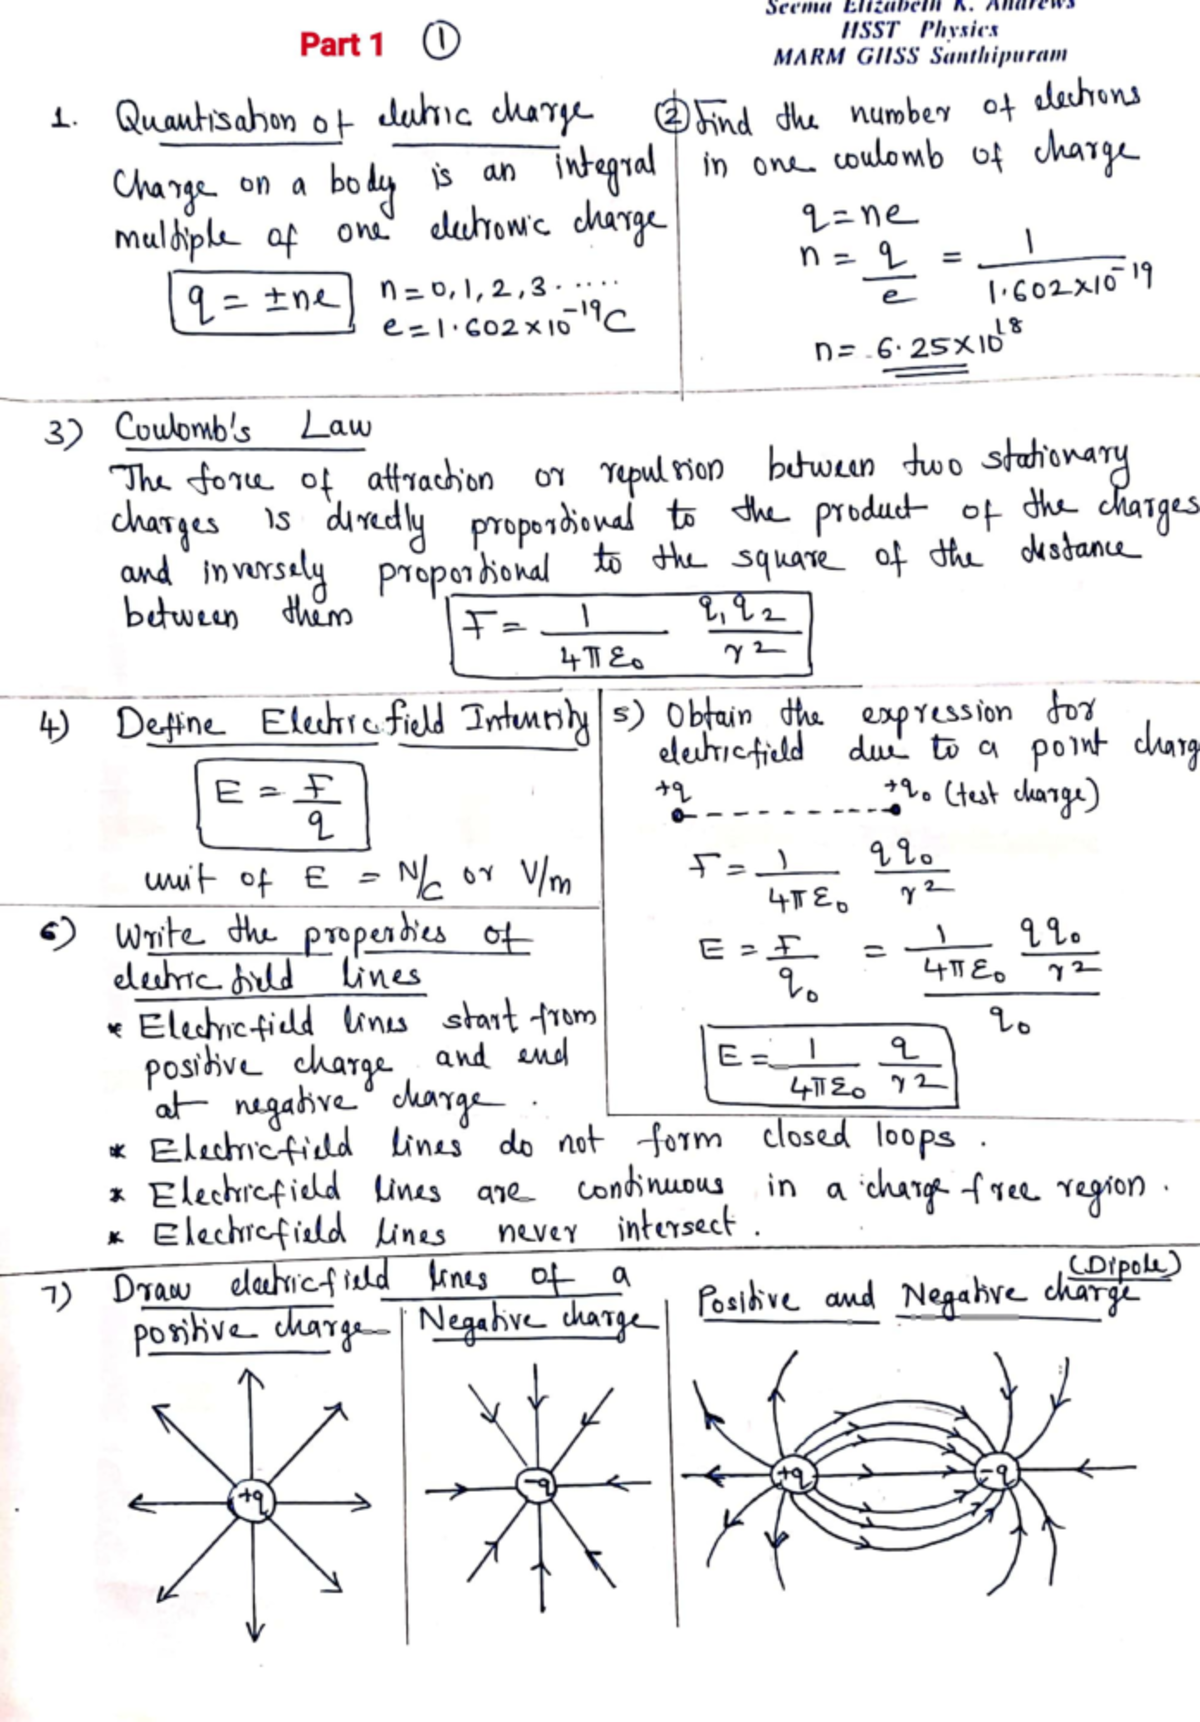 Seema Elizabeth K. Andrews
HSST Physics
MARM GHSS Santhipuram
Part 1 ①
1. Quantisation of electric charge
Charge on a body is an integral
multiple of one electronic charge
q = ±ne
n = 0, 1, 2, 3 ......
e = 1.602 × 10⁻¹⁹ C
② Find the number of electrons
in one coulomb of charge
q = ne
n = q/e = 1/1.602×10⁻¹⁹
n = 6.25×10¹⁸
3) Coulomb's Law
The force of attraction or repulsion between two stationary
charges is directly proportional to the product of the charges
and inversely proportional to the square of the distance
between them
F = 1/4πε₀ q₁q₂/r²
4) Define Electric field Intensity
E = F/q
unit of E = N/C or V/m
5) Obtain the expression for
electric field due to a point charg
+q +q₀ (test charge)
F = 1/4πε₀ qq₀/r²
E = F/q₀ = 1/4πε₀ qq₀/r² / q₀
E = 1/4πε₀ q/r²
6) Write the properties of
electric field lines
* Electric field lines start from
positive charge and end
at negative charge.
* Electric field lines do not form closed loops.
* Electric field lines are continuous in a charge free region.
* Electric field lines never intersect.
7) Draw electric field lines of a
positive charge
Negative charge
Positive and Negative charge
(Dipole)
+q
-q
+q -q